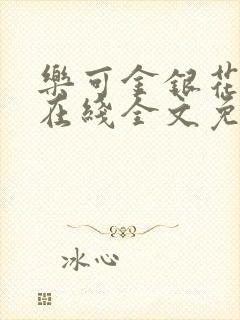 樂可金銀花
在綫全文免
冰心